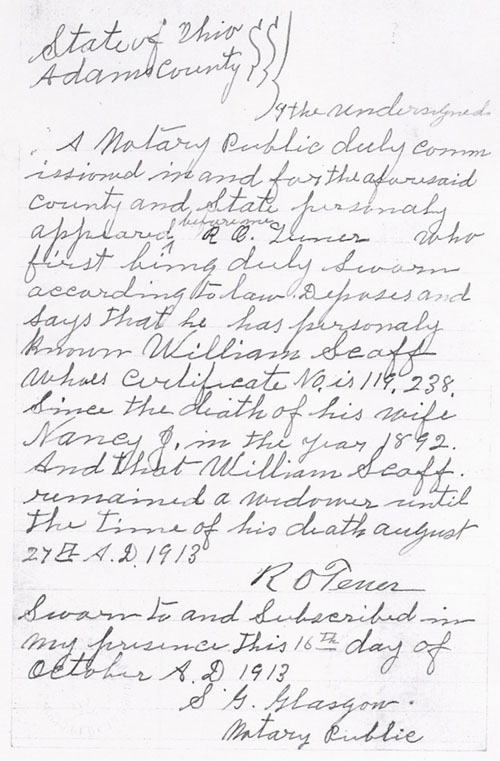 State of Ohio
Adams County
I the undersigned
A Notary Public duly comm
issioned in and for the aforesaid
county and State personaly
appeared before me R O. Tener who
first being duly Sworn
according to law. Deposes and
says that he has personaly
known William Scaff
Whoes Certificate No. is 119,238.
Since the death of his wife
Nancy J. in the year 1892.
And that William Scaff.
remained a widower until
the time of his death august
27th A.D. 1913
R O Tener
Sworn to and Subscribed in
my presence this 16th day of
October A.D 1913
S G. Glasgow.
Notary Public